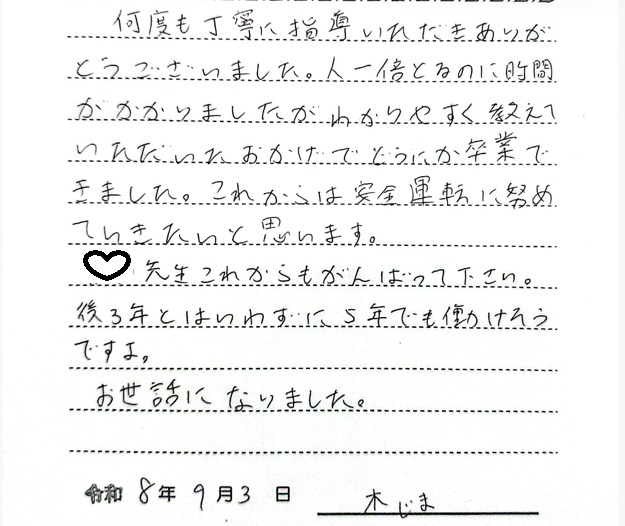 何度も丁寧に指導いただきありが
とうございました。人一倍とるのに時間
がかかりましたがわかりやすく教えて
いただいたおかげでどうにか卒業で
きました。これからは安全運転に努め
ていきたいと思います。
先生これからもがんばって下さい。
後3年とはいわずに5年でも働けそう
ですよ。
お世話になりました。
令和 8年 9月3日 木じま